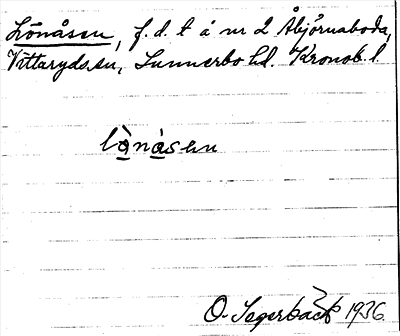 Lönåsen, f.d. t å nr 2 Åbjörnaboda,
Vittaryds sn, Sunnerbo hd. Kronob. l.
lö̀nåsen
O. Segerbäck 1936